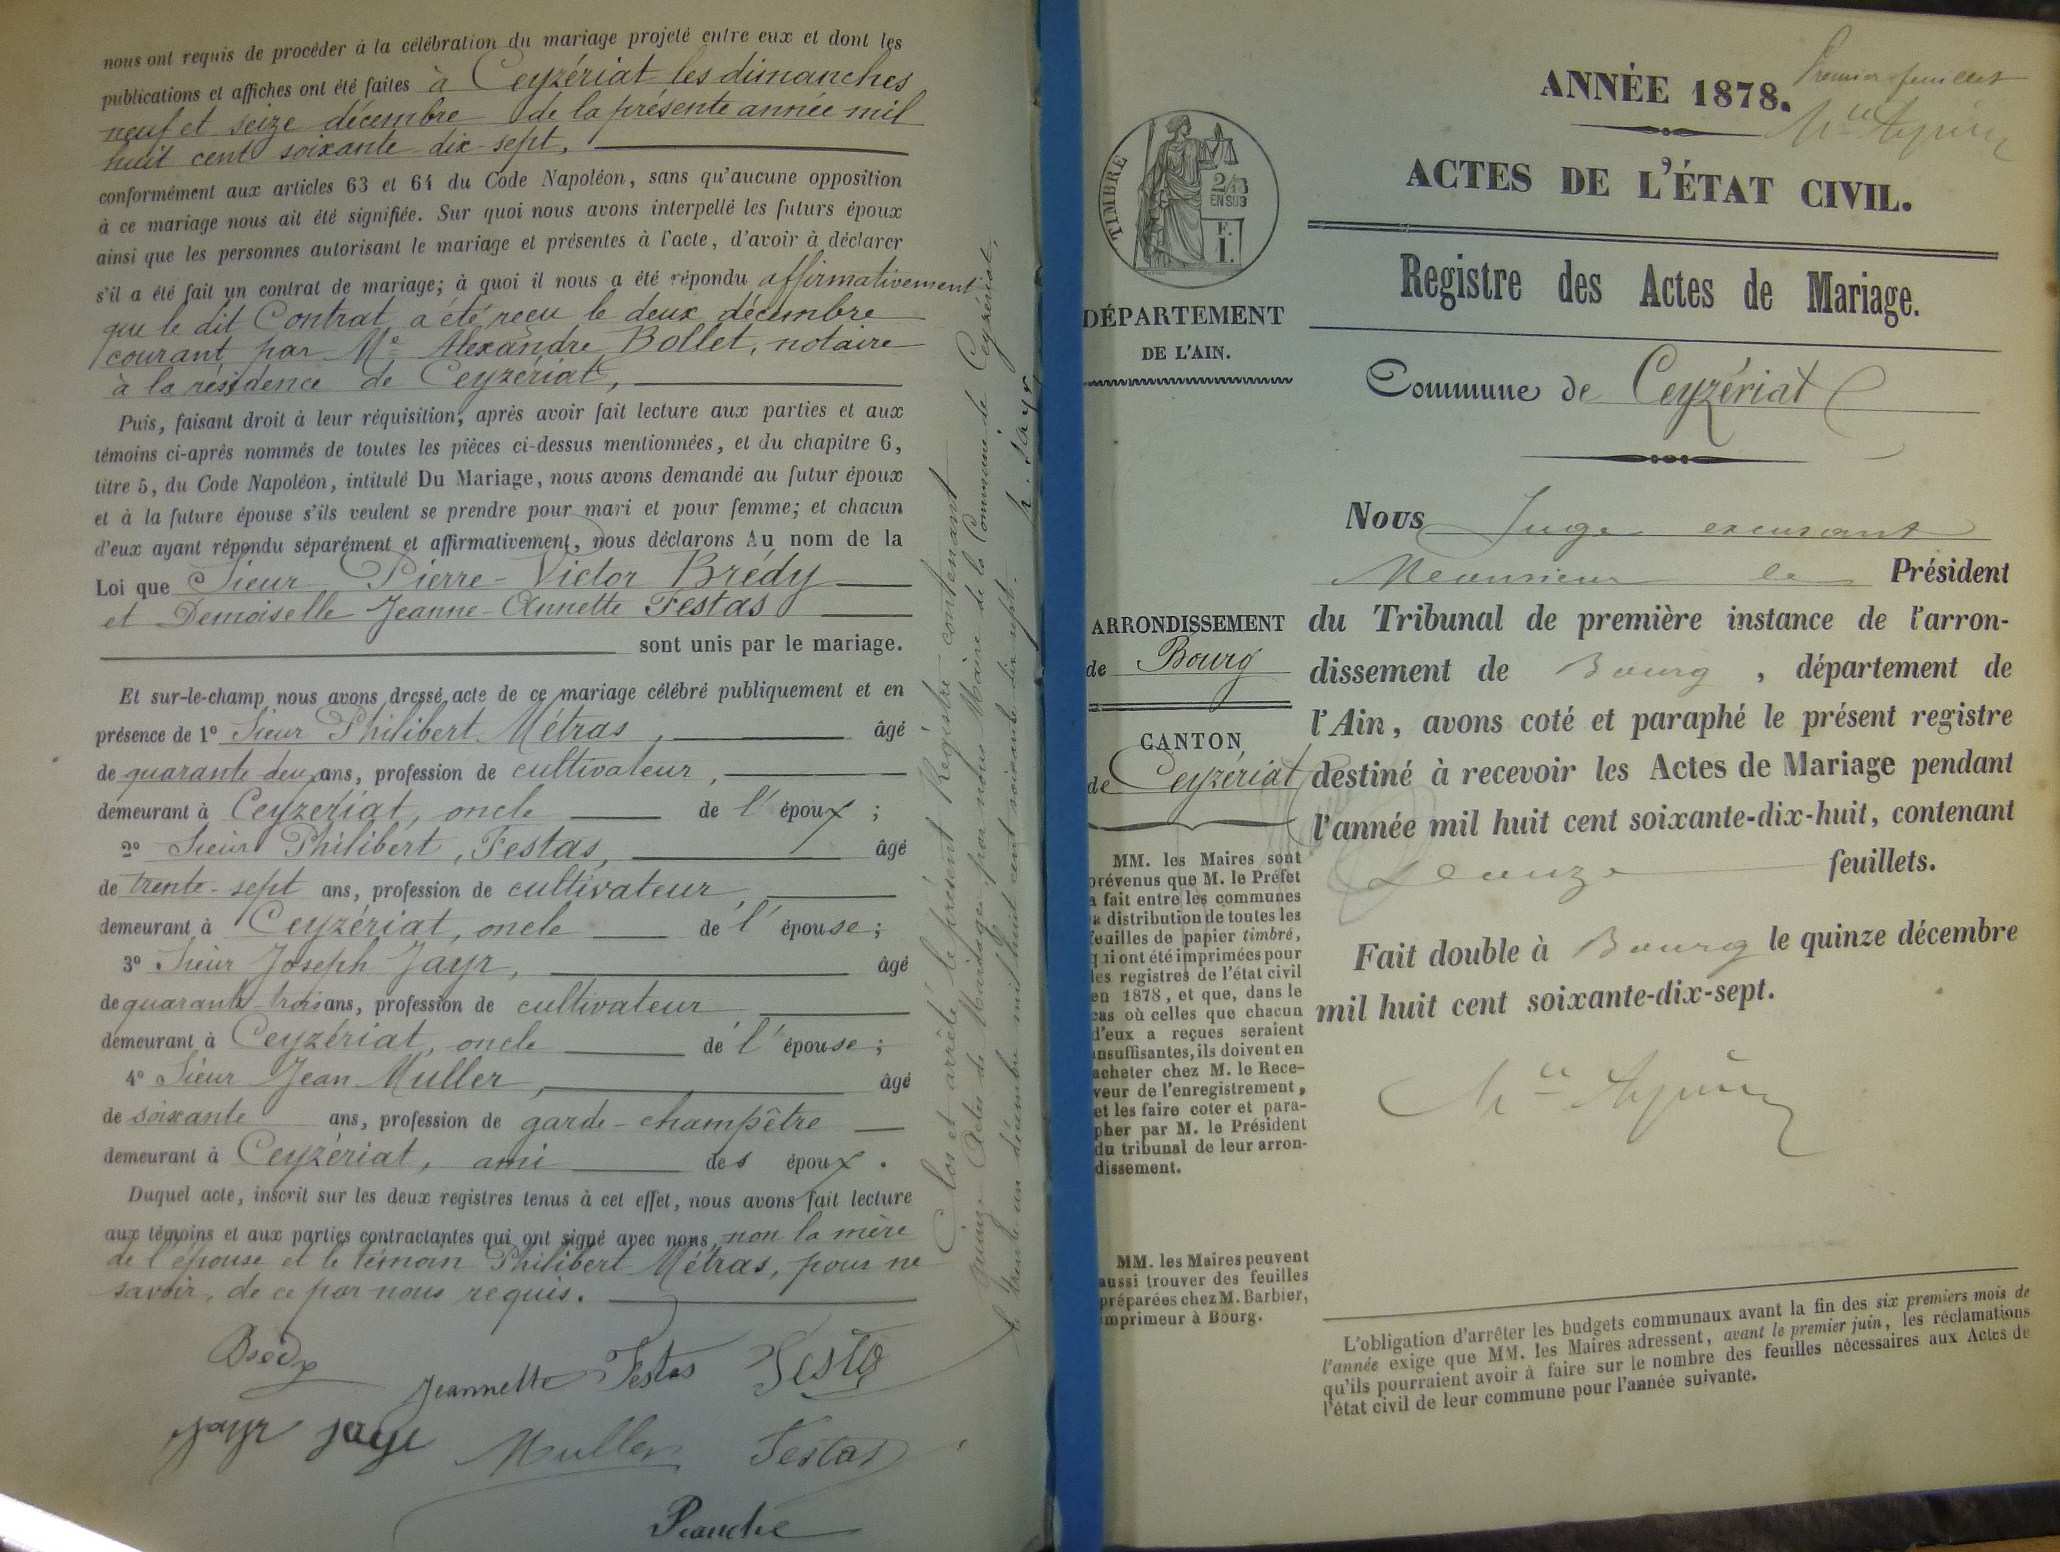 nous ont requis de procéder à la célébration du mariage projeté entre eux et dont les
publications et affiches ont été faites à Ceyzériat les dimanches
neuf et seize décembre de la présente année mil
huit cent soixante-dix-sept,
conformément aux articles 63 et 64 du Code Napoléon, sans qu'aucune opposition
à ce mariage nous ait été signifiée. Sur quoi nous avons interpellé les futurs époux
ainsi que les personnes autorisant le mariage et présentes à l'acte, d'avoir à déclarer
s'il a été fait un contrat de mariage; à quoi il nous a été répondu affirmativement
que le dit Contrat a été reçu le deux décembre
courant par Me Alexandre Bollet, notaire
à la résidence de Ceyzériat,
Puis, faisant droit à leur réquisition, après avoir fait lecture aux parties et aux
témoins ci-après nommés de toutes les pièces ci-dessus mentionnées, et du chapitre 6,
titre 5, du Code Napoléon, intitulé Du Mariage, nous avons demandé au futur époux
et à la future épouse s'ils veulent se prendre pour mari et pour femme; et chacun
d'eux ayant répondu séparément et affirmativement, nous déclarons Au nom de la
Loi que Sieur Pierre-Victor Brédy
et Demoiselle Jeanne-Annette Festas
sont unis par le mariage.
Et sur-le-champ nous avons dressé acte de ce mariage célébré publiquement et en
présence de 1° Sieur Philibert Métras, âgé
de quarante deux ans, profession de cultivateur,
demeurant à Ceyzériat, oncle de l'époux;
2° Sieur Philibert, Festas, âgé
de trente-sept ans, profession de cultivateur,
demeurant à Ceyzériat, oncle de l'épouse;
3° Sieur Joseph Jayr, âgé
de quarante-trois ans, profession de cultivateur
demeurant à Ceyzériat, oncle de l'épouse;
4° Sieur Jean Muller, âgé
de soixante ans, profession de garde-champêtre
demeurant à Ceyzériat, ami des époux.
Duquel acte, inscrit sur les deux registres tenus à cet effet, nous avons fait lecture
aux témoins et aux parties contractantes qui ont signé avec nous, non la mère
de l'épouse et le témoin Philibert Métras, pour ne
savoir, de ce par nous requis.
Brédy
Jeannette Festas Festas
Jayr Jayr Muller Festas
Clos et arrêté le présent Registre contenant
quinze Actes de Mariage, par nous Maire de la Commune de Ceyzériat,
le trente un décembre mil huit cent soixante dix sept.
ANNÉE 1878.
Premier feuillet
TIMBRE
2/10
EN SUS
F.
1.
ACTES DE L'ÉTAT CIVIL.
Registre des Actes de Mariage.
DÉPARTEMENT
DE L'AIN.
Commune de Ceyzériat
ARRONDISSEMENT
de Bourg
CANTON
de Ceyzériat
MM. les Maires sont
prévenus que M. le Préfet
a fait entre les communes
la distribution de toutes les
feuilles de papier timbré,
qui ont été imprimées pour
les registres de l'état civil
en 1878, et que, dans le
cas où celles que chacun
d'eux a reçues seraient
insuffisantes, ils doivent en
acheter chez M. le Rece-
veur de l'enregistrement,
et les faire coter et para-
pher par M. le Président
du tribunal de leur arron-
dissement.
MM. les Maires peuvent
aussi trouver des feuilles
préparées chez M. Barbier,
imprimeur à Bourg.
Nous Juge excusant
Monsieur le Président
du Tribunal de première instance de l'arron-
dissement de Bourg, département de
l'Ain, avons coté et paraphé le présent registre
destiné à recevoir les Actes de Mariage pendant
l'année mil huit cent soixante-dix-huit, contenant
feuillets.
Fait double à Bourg le quinze décembre
mil huit cent soixante-dix-sept.
L'obligation d'arrêter les budgets communaux avant la fin des six premiers mois de
l'année exige que MM. les Maires adressent, avant le premier juin, les réclamations
qu'ils pourraient avoir à faire sur le nombre des feuilles nécessaires aux Actes de
l'état civil de leur commune pour l'année suivante.